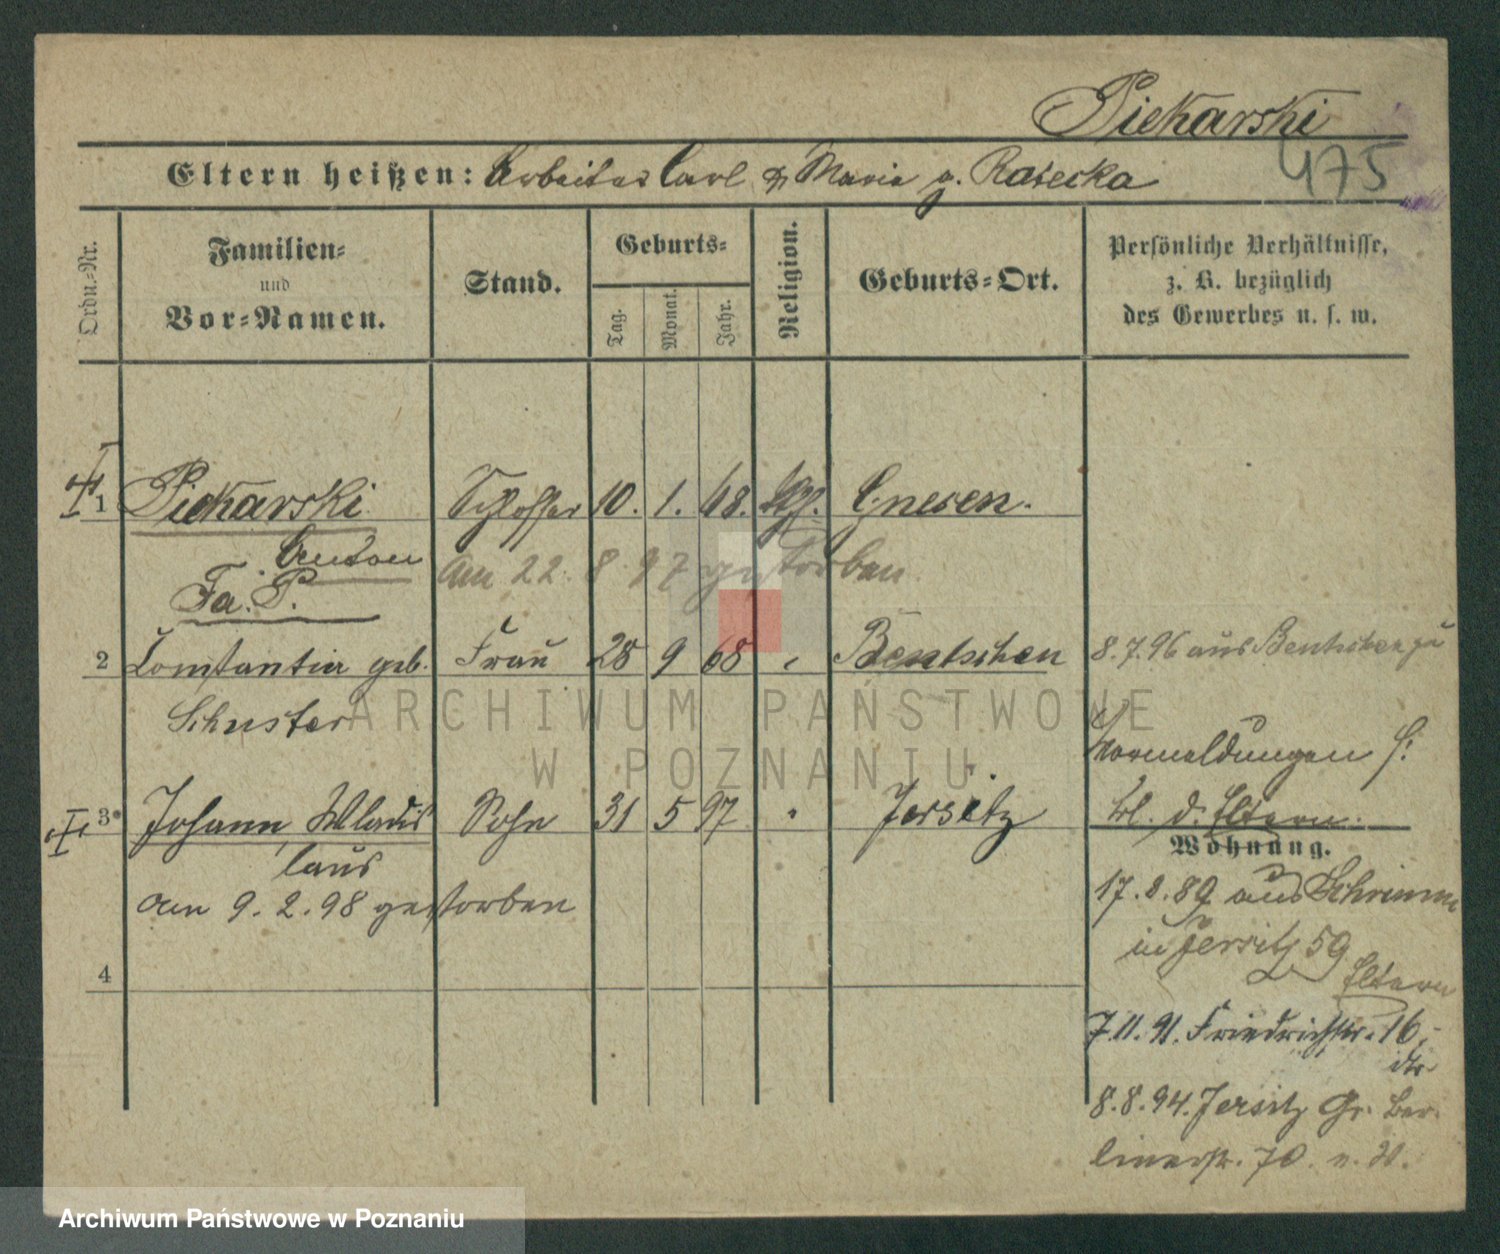 Piekarski
475
Eltern heißen: Arbeiter Carl & Maria g. Ratecka
Ordn.-Nr.
Familien-
und
Vor-Namen.
Stand.
Geburts-
Tag.
Monat.
Jahr.
Religion.
Geburts-Ort.
Persönliche Verhältnisse,
z. B. bezüglich
des Gewerbes u. s. w.
1 Piekarski Schlosser 10. 1. 68. Gnesen.
Anton
am 22. 8 97 gestorben
Fa. P.
2 Constantia geb. Frau 28 9 68 " Bentschen
Schuster
8.7.96 aus Bentschen zu
Vormeldungen s:
bl. d. Eltern.
3 Johann, Wladis Sohn 31 5 97 " Jersitz
laus
am 9. 2. 98 gestorben
4
Wohnung.
17. 8. 89 aus Schrimm
in Jersitz 59
Eltern
7.11.91. Friedrichstr. 16
dto
8.8.94. Jersitz Gr. Ber-
linerstr. 70. u.
ARCHIWUM PAŃSTWOWE
W POZNANIU
Archiwum Państwowe w Poznaniu